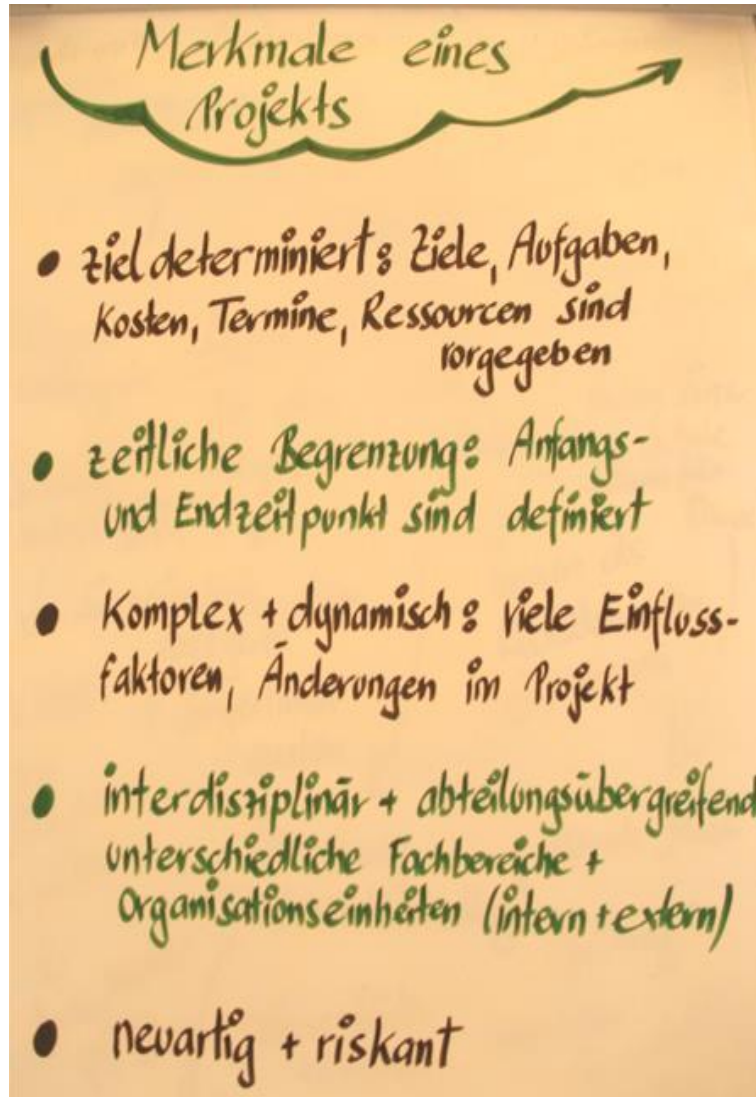 Merkmale eines
Projekts
• zieldeterminiert: Ziele, Aufgaben,
Kosten, Termine, Ressourcen sind
vorgegeben
• zeitliche Begrenzung: Anfangs-
und Endzeitpunkt sind definiert
• Komplex + dynamisch: viele Einfluss-
faktoren, Änderungen im Projekt
• interdisziplinär + abteilungsübergreifend
unterschiedliche Fachbereiche +
Organisationseinheiten (intern + extern)
• neuartig + riskant